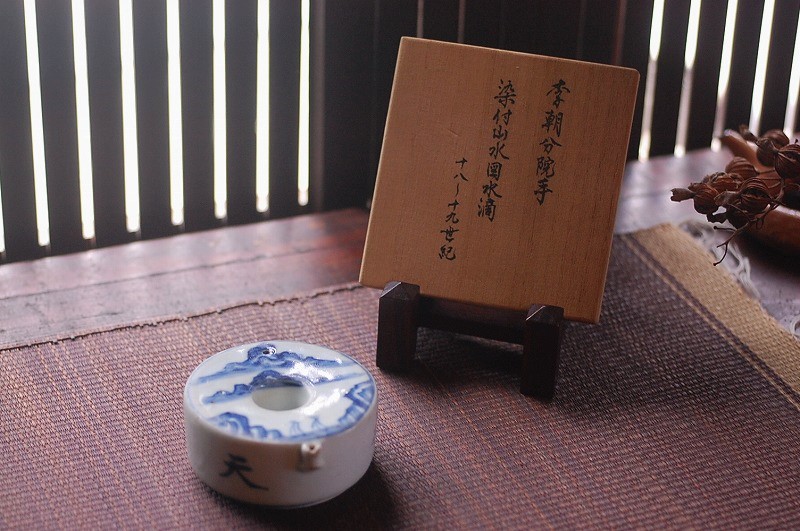 李朝分院手
染付山水図水滴
十八〜十九世紀
天